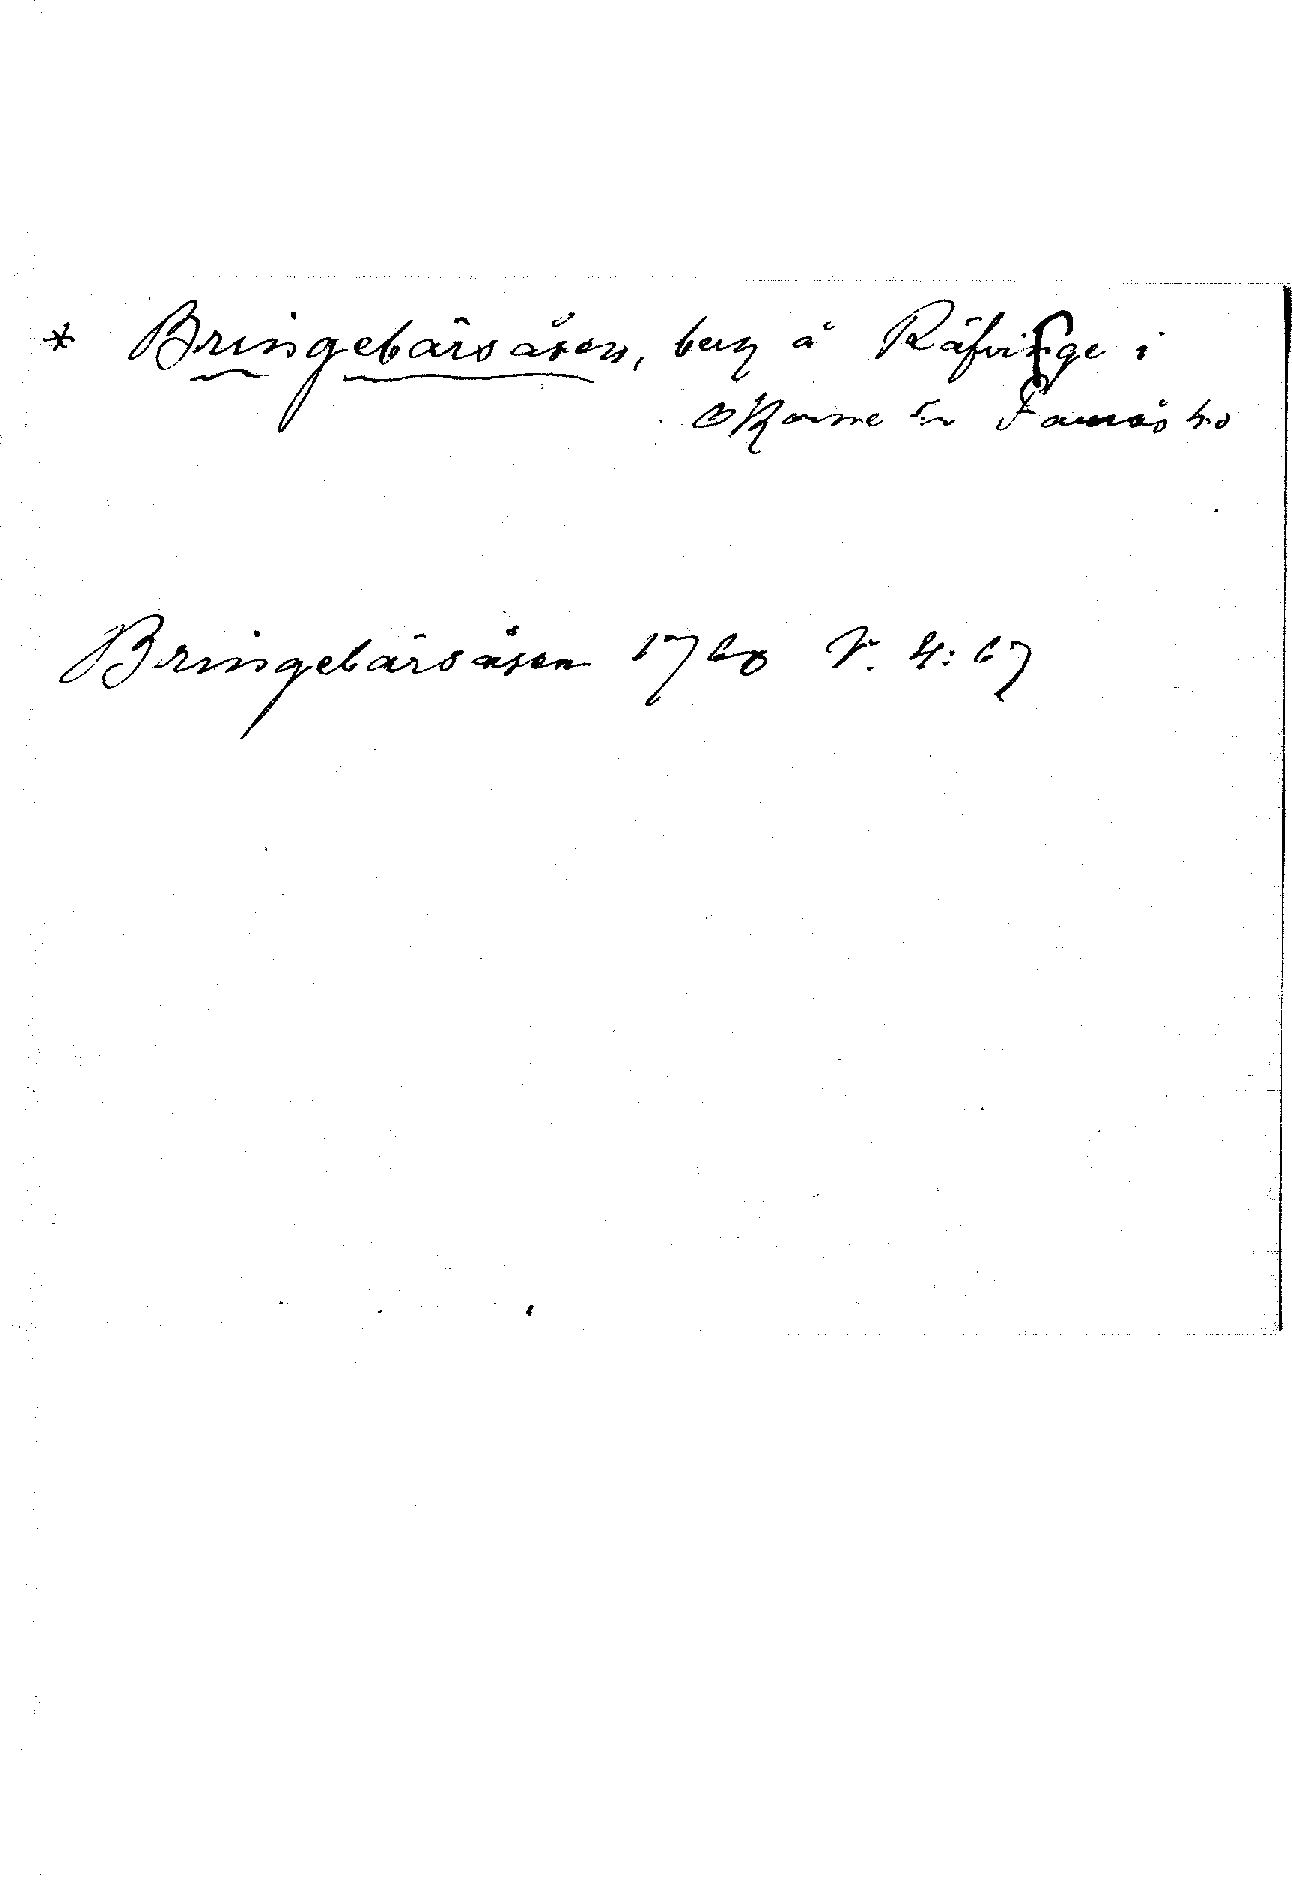 * Bringebärsåsen, berg å Räfvinge i
Skorne sn Faurås hd
Bringebärsåsen 1760 V. 4:67